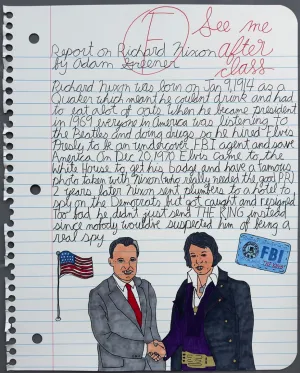 F
See me
after
class
Report on Richard Nixon
by Adam Greener
Richard Nixon was born on Jan 9, 1914 as a
Quaker which meant he couldnt drink and had
to eat alot of oats. When he became President
in 1969 everyone in America was listening to
the Beatles and doing drugs so he hired Elvis
Presley to be an undercover FBI agent and save
America. On Dec 20, 1970 Elvis came to the
White House to get his badge and have a famous
photo taken with Nixon (who really needed the good PR)
2 years later Nixon sent plumbers to a hotel to
spy on the Democrats but got caught and resigned
Too bad he didnt just send THE KING instead
since nobody wouldve suspected him of being a
real spy
FBI